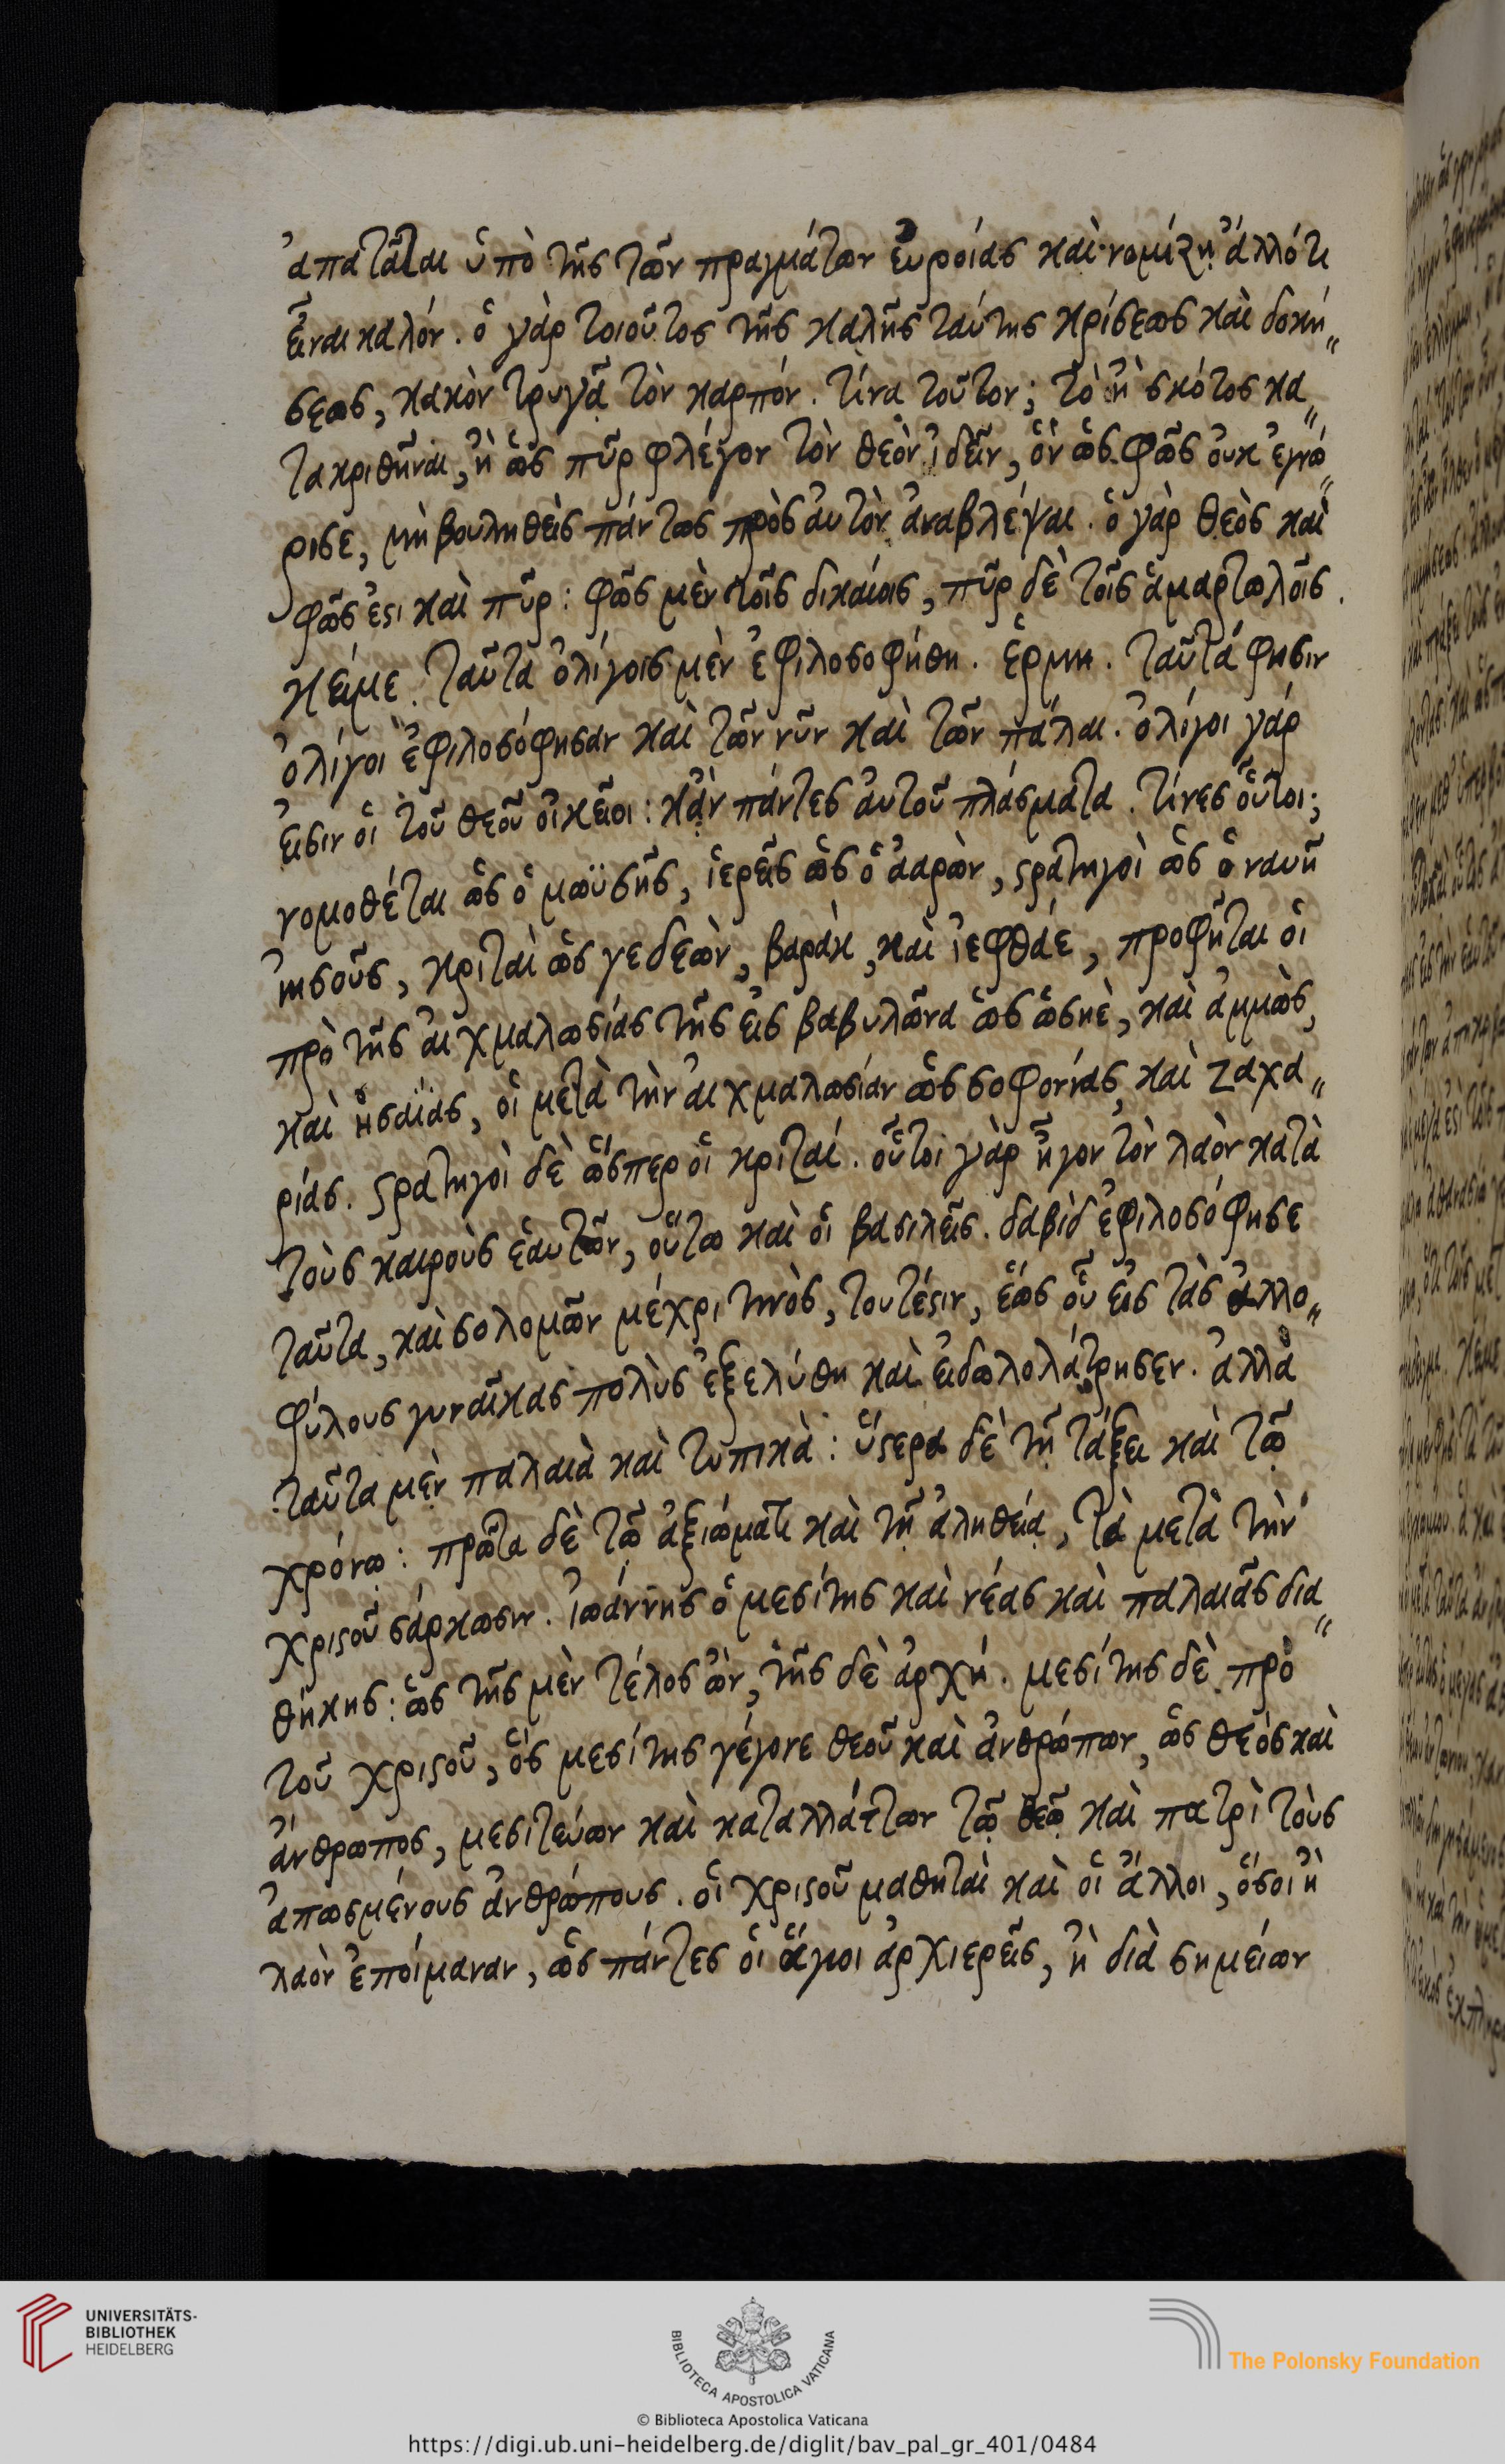 ἀπατᾶται ὑπὸ τῆς τῶν πραγμάτων εὐροίας καὶ νομίζη ἀλλό τι
εἶναι καλόν. ὁ γὰρ τοιοῦτος τῆς καλῆς ταύτης κρίσεως καὶ δοκή〃
σεως, κακὸν τρυγᾷ τὸν καρπόν. τίνα τοῦτον; τὸ ἢ σκότος κα〃
τακριθῆναι, ἢ ὡς πῦρ φλέγον τὸν θεὸν ἰδεῖν, ὃν ὡς φῶς οὐκ ἐγνώ〃
ρισε, μὴ βουληθεὶς πάντως πρὸς αὐτὸν ἀναβλέψαι. ὁ γὰρ θεὸς καὶ
φῶς ἐϛι καὶ πῦρ: φῶς μὲν τοῖς δικαίοις, πῦρ δὲ τοῖς ἁμαρτωλοῖς.
κείμε. ταῦτα ὀλίγοις μὲν ἐφιλοσοφήθη. ἑρμη. ταῦτά φησιν
ὀλίγοι ἐφιλοσόφησαν καὶ τῶν νῦν καὶ τῶν πάλαι. ὀλίγοι γάρ
εἰσιν οἱ τοῦ θεοῦ οἰκεῖοι: κἂν πάντες αὐτοῦ πλάσματα. τίνες οὗτοι;
νομοθέται ὡς ὁ μωϋσῆς, ἱερεῖς ὡς ὁ ἀαρὼν, ϛρατηγοὶ ὡς ὁ ναυῆ
ἰησοῦς, κριταὶ ὡς γεδεὼν, βαρὰκ, καὶ ἰεφθάε, προφῆται οἱ
πρὸ τῆς αἰχμαλωσίας τῆς εἰς βαβυλῶνα ὡς ὡσηὲ, καὶ ἀμμὼς,
καὶ ἡσαΐας, οἱ μετὰ τὴν αἰχμαλωσίαν ὡς σοφονίας, καὶ ζαχα〃
ρίας. ϛρατηγοὶ δὲ ὥσπερ οἱ κριταί. οὗτοι γὰρ ἦγον τὸν λαὸν κατὰ
τοὺς καιροὺς ἑαυτῶν, οὕτω καὶ οἱ βασιλεῖς. δαβὶδ ἐφιλοσόφησε
ταῦτα, καὶ σολομῶν μέχρι τινὸς, τουτέϛιν, ἕως οὗ εἰς τὰς ἀλλο〃
φύλους γυναῖκας πολὺς ἐξελύθη καὶ εἰδωλολάτρησεν. ἀλλὰ
ταῦτα μὲν παλαιὰ καὶ τυπικὰ: ὕϛερα δὲ τῇ τάξει καὶ τῷ
χρόνῳ: πρῶτα δὲ τῷ ἀξιώματι καὶ τῇ ἀληθείᾳ, τὰ μετὰ τὴν
χριϛοῦ σάρκωσιν. ἰωάννης ὁ μεσίτης καὶ νέας καὶ παλαιᾶς δια〃
θήκης: ὡς τῆς μὲν τέλος ὢν, τῆς δὲ ἀρχή. μεσίτης δὲ πρὸ
τοῦ χριϛοῦ, ὃς μεσίτης γέγονε θεοῦ καὶ ἀνθρώπων, ὡς θεὸς καὶ
ἄνθρωπος, μεσιτεύων καὶ καταλλάττων τῷ θεῷ καὶ πατρὶ τοὺς
ἀπωσμένους ἀνθρώπους. οἱ χριϛοῦ μαθηταὶ καὶ οἱ ἄλλοι, ὅσοι ἢ
λαὸν ἐποίμαναν, ὡς πάντες οἱ ἅγιοι ἀρχιερεῖς, ἢ διὰ σημείων
UNIVERSITÄTS-
BIBLIOTHEK
HEIDELBERG
BIBLIOTECA APOSTOLICA VATICANA
The Polonsky Foundation
© Biblioteca Apostolica Vaticana
https://digi.ub.uni-heidelberg.de/diglit/bav_pal_gr_401/0484